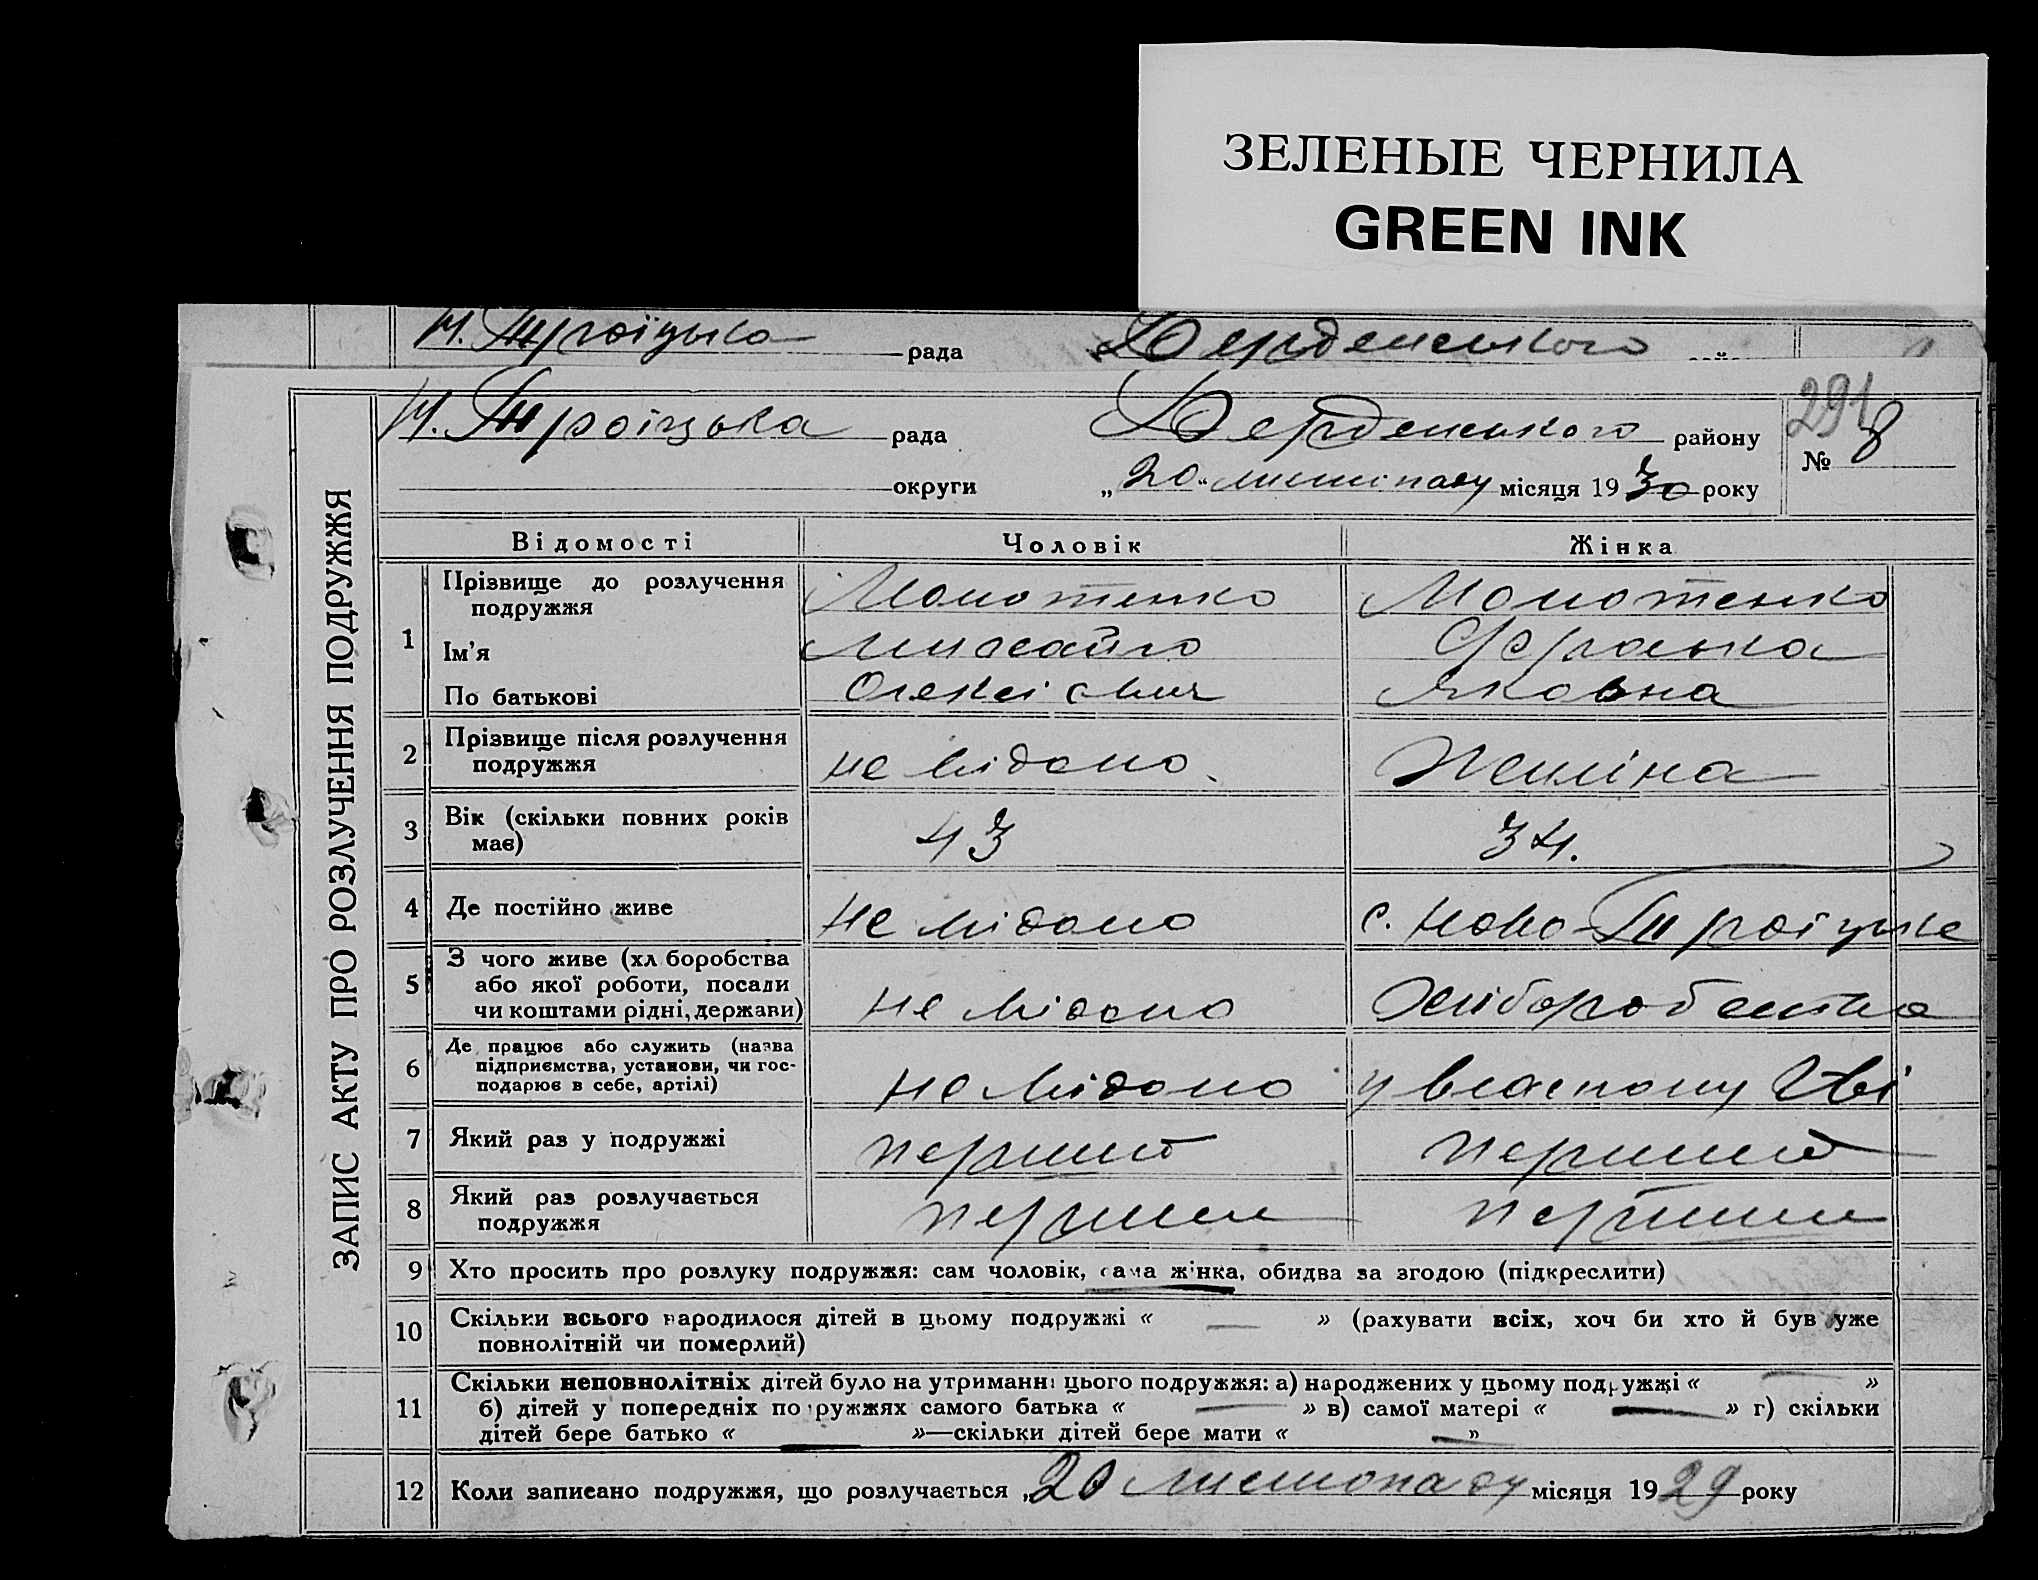 ЗЕЛЕНЫЕ ЧЕРНИЛА
GREEN INK
Н. Троїцька рада Бердянського
Н. Троїцька рада Бердянського району
291
№ 8
округи „20“ листопаду місяця 1930 року
ЗАПИС АКТУ ПРО РОЗЛУЧЕННЯ ПОДРУЖЖЯ
Відомості Чоловік Жінка
1 Прізвище до розлучення подружжя Молотенко Молотенко
Ім’я Михайло Фроська
По батькові Олексієвич Яковна
2 Прізвище після розлучення
подружжя не відомо Жиліна
3 Вік (скільки повних років
має) 43 34.
4 Де постійно живе не відомо с. Ново-Троїцьке
5 З чого живе (хліборобства
або якої роботи, посади
чи коштами рідні, держави) не відомо Хліборобства
6 Де працює або служить (назва
підприємства, установи, чи гос-
подарює в себе, артілі) не відомо у власному
7 Який раз у подружжі перший перший
8 Який раз розлучається
подружжя перший перший
9 Хто просить про розлуку подружжя: сам чоловік, сама жінка, обидва за згодою (підкреслити)
10 Скільки всього народилося дітей в цьому подружжі « — » (рахувати всіх, хоч би хто й був уже
повнолітній чи померлий)
11 Скільки неповнолітніх дітей було на утриманні цього подружжя: а) народжених у цьому подружжі « — »
б) дітей у попередніх подружжях самого батька « — » в) самої матері « — » г) скільки
дітей бере батько « — »—скільки дітей бере мати « — »
12 Коли записано подружжя, що розлучається „20 листопаду місяця 1929 року